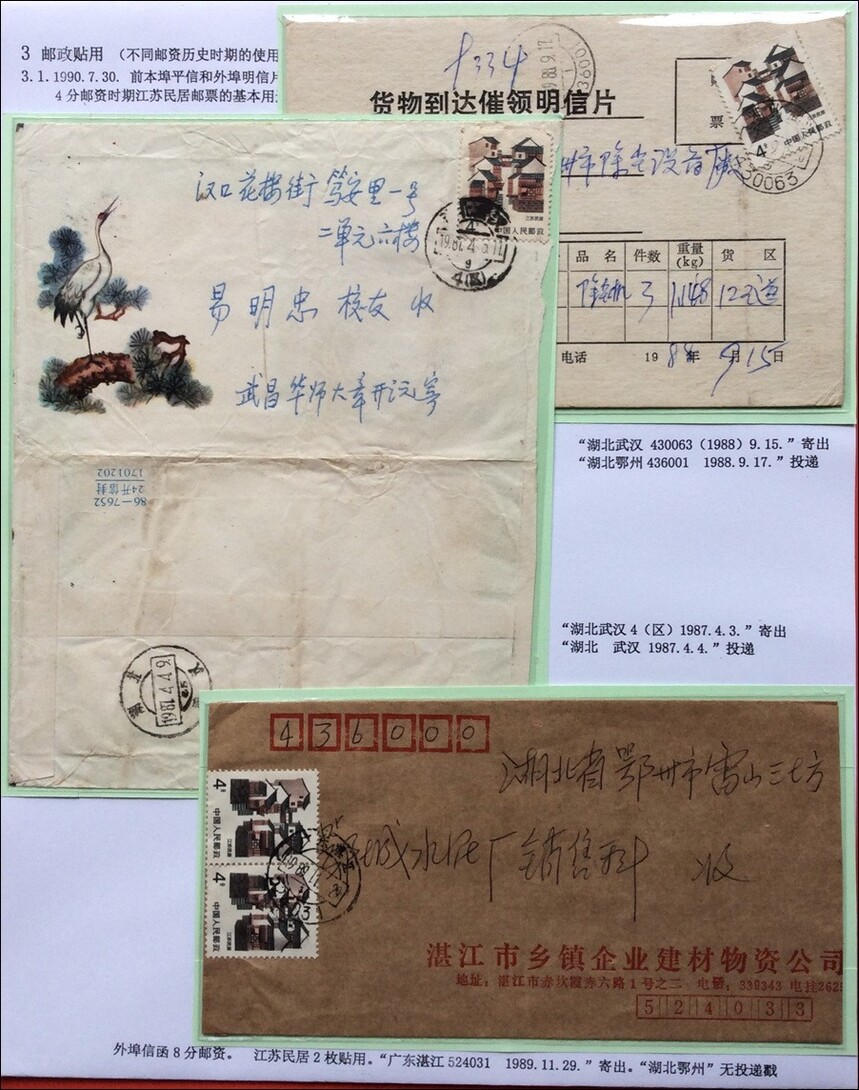 3 邮政贴用 （不同邮资历史时期的使用
3.1.1990.7.30. 前本埠平信和外埠明信片
4分邮资时期江苏民居邮票的基本用
货物到达催领明信片
票
4分
中国人民邮政
430063
州市除尘设备厂
品名 件数 重量(kg) 货区
3 12
电话 1988年9月15日
汉口花楼街笃安里一号
二单元六楼
易明忠 校友 收
武昌华师大章开沅寄
中国人民邮政
江苏民居
1987.4.3.11
4(区)
86-7652
24开信封
1701202
1987.4.4.9
“湖北武汉 430063（1988）9.15.”寄出
“湖北鄂州 436001 1988.9.17.”投递
“湖北武汉4（区）1987.4.3.”寄出
“湖北 武汉 1987.4.4.”投递
436000
湖北省鄂州市雷山三七方
城水泥厂销售科 收
4分
中国人民邮政
江苏民居
4分
中国人民邮政
江苏民居
湛江市乡镇企业建材物资公司
地址：湛江市赤坎霞赤六路1号之二 电话：339343 电挂262
524033
外埠信函8分邮资。 江苏民居2枚贴用。“广东湛江524031 1989.11.29.”寄出。“湖北鄂州”无投递戳